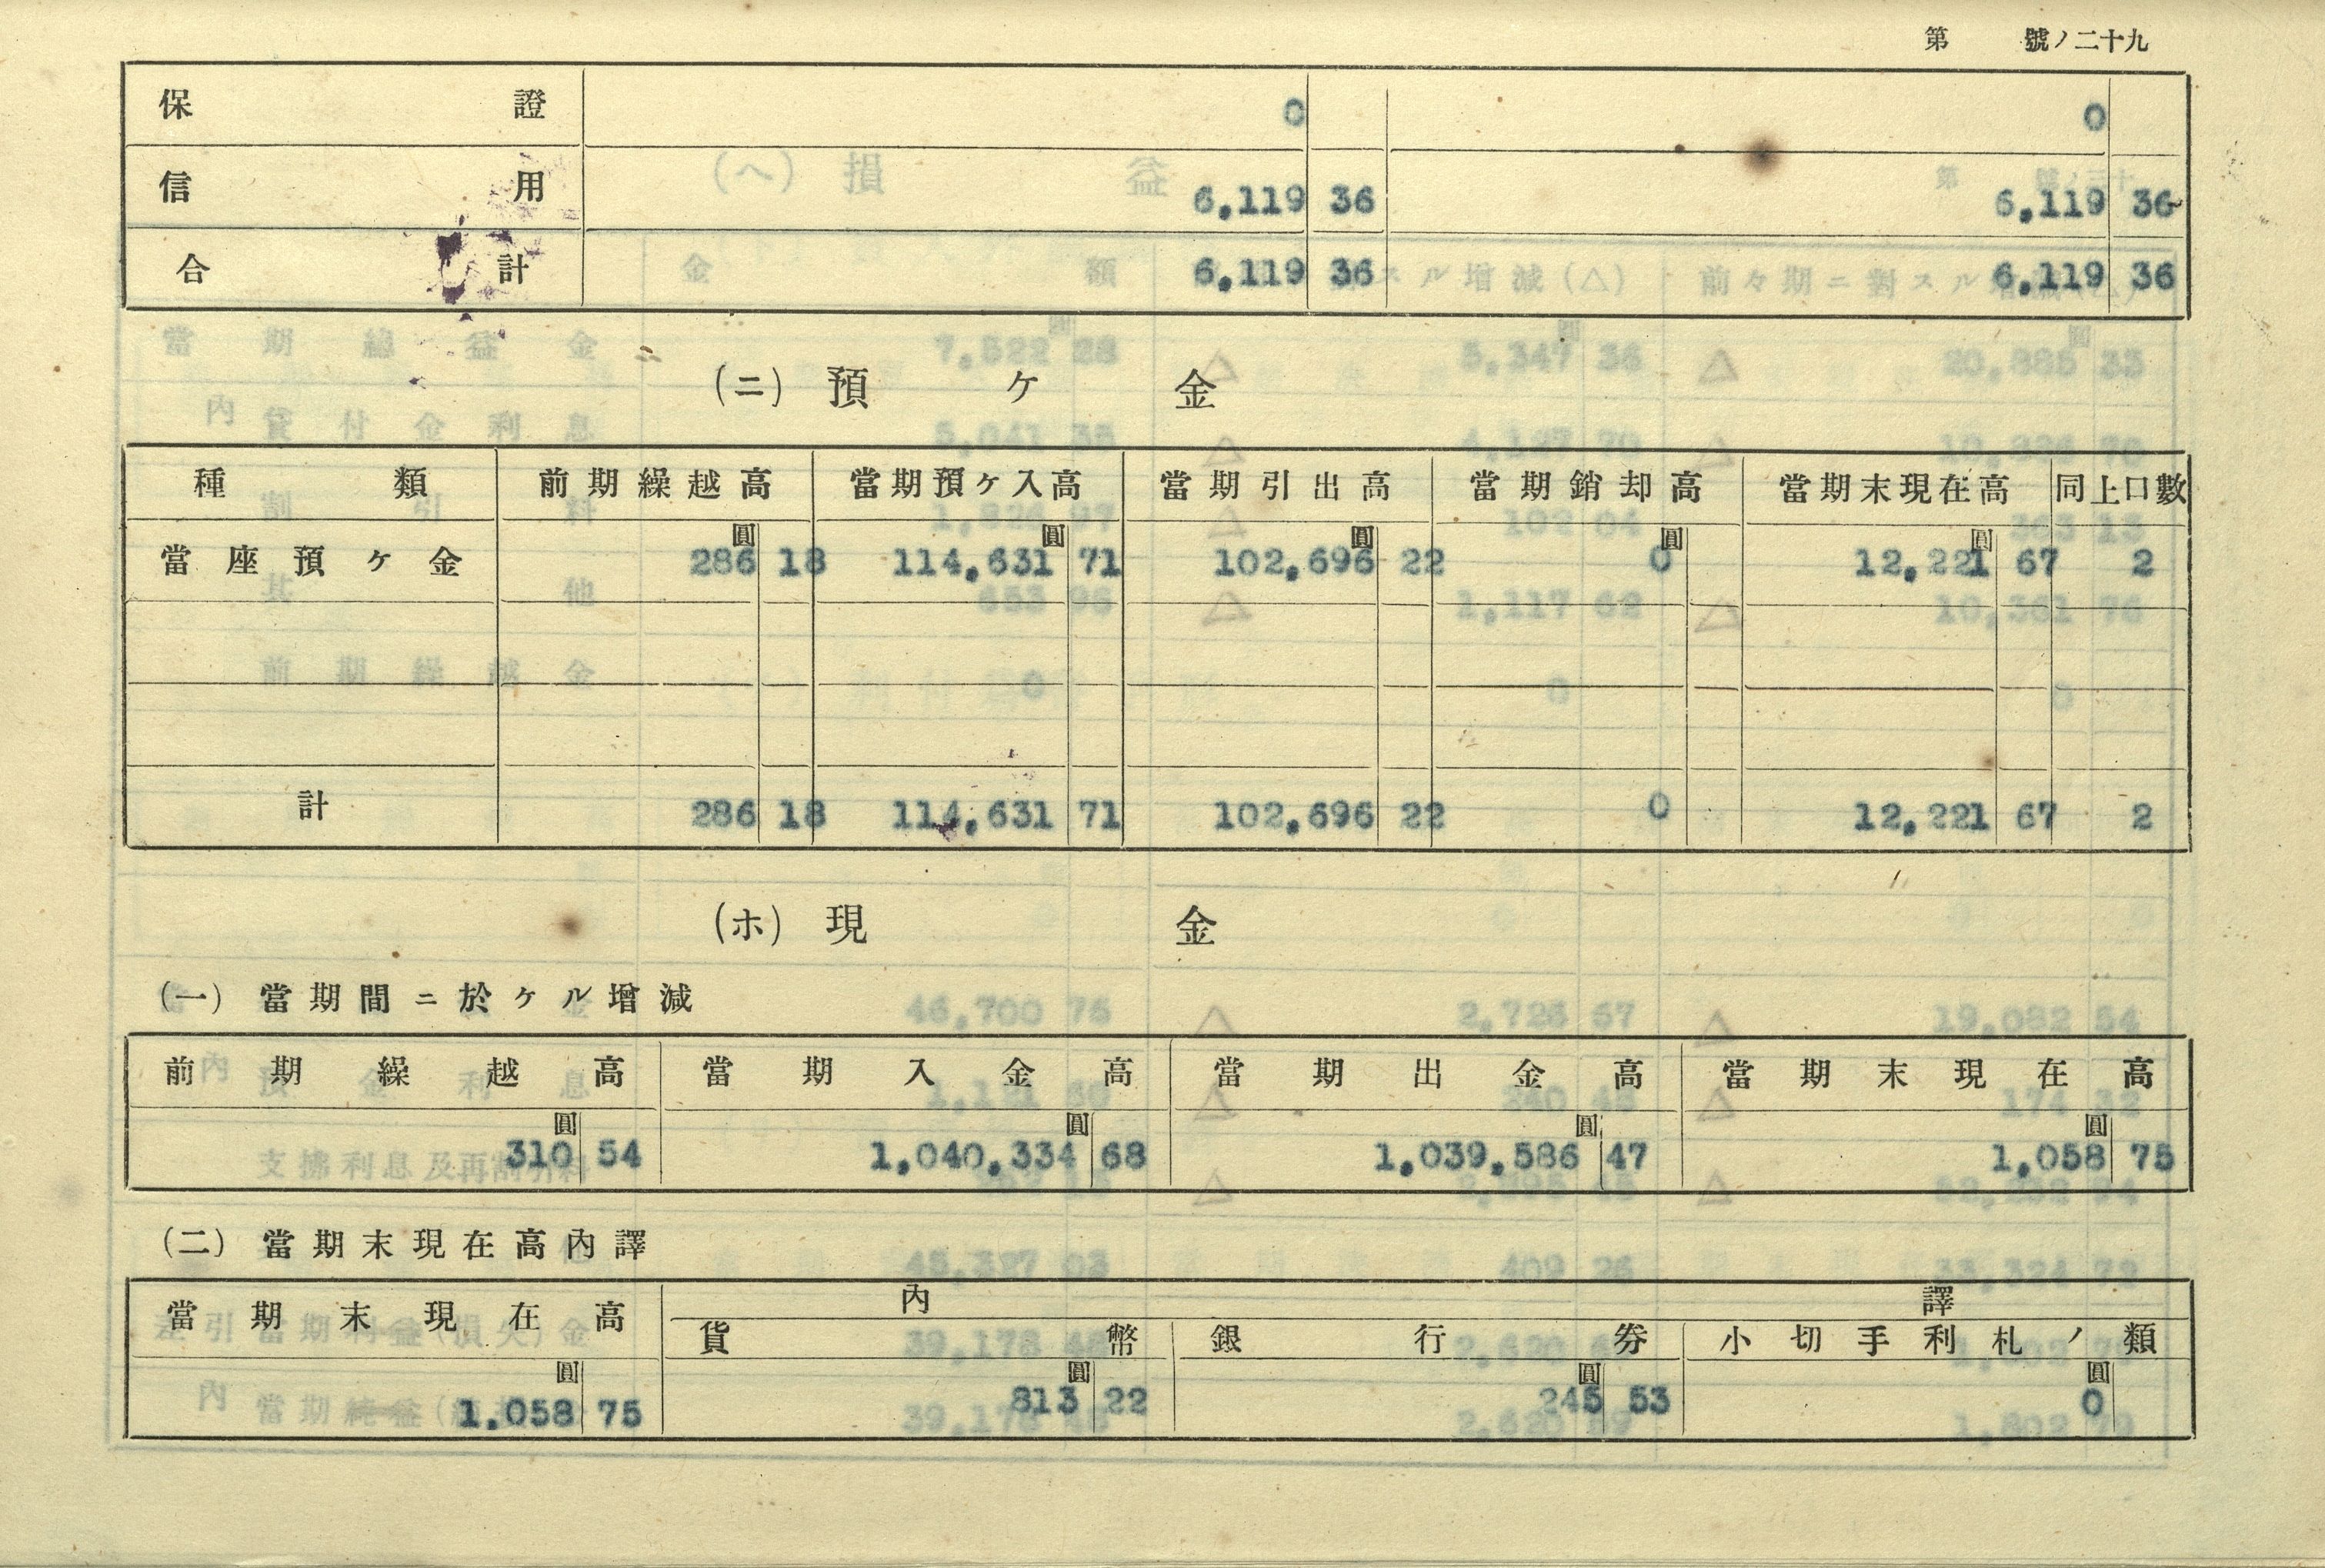 第 號ノ二十九
保證 0 0
信用 6,119 36 6,119 36
合計 6,119 36 6,119 36
(ニ) 預ケ金
種類 前期繰越高 當期預ケ入高 當期引出高 當期銷却高 當期末現在高 同上口數
圓 圓 圓 圓 圓
當座預ケ金 286 18 114,631 71 102,696 22 0 12,221 67 2
計 286 18 114,631 71 102,696 22 0 12,221 67 2
(ホ) 現金
(一) 當期間ニ於ケル增減
前期繰越高 當期入金高 當期出金高 當期末現在高
圓 圓 圓 圓
310 54 1,040,334 68 1,039,586 47 1,058 75
(二) 當期末現在高內譯
當期末現在高 內譯
貨幣 銀行劵 小切手利札ノ類
圓 圓 圓 圓
1,058 75 813 22 245 53 0